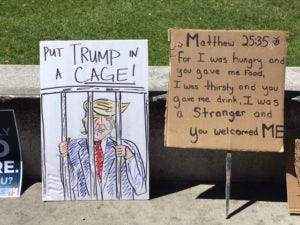 PUT TRUMP IN
A CAGE!
Matthew 25:35
For I was hungry and
you gave me Food,
I was thirsty and you
gave me drink. I was
a Stranger and
you welcomed ME
RE.
U?